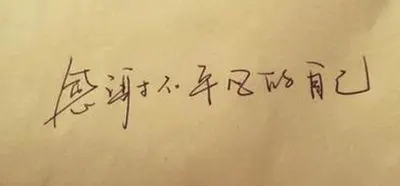 感谢不平凡的自己